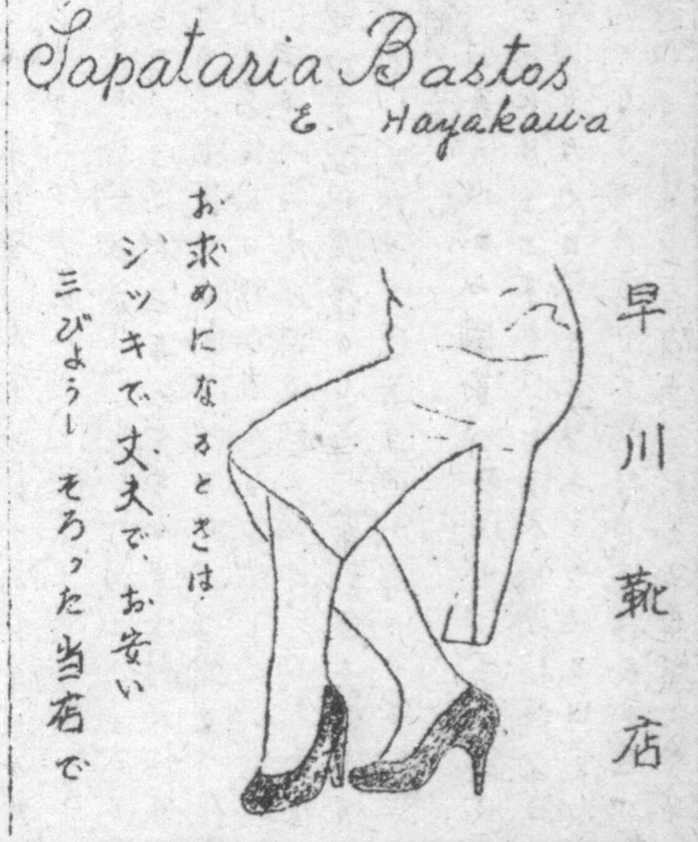 Sapataria Bastos
E. Hayakawa
早川靴店
お求めになるときは
シツキで丈夫で、お安い
三びょうしそろった当店で